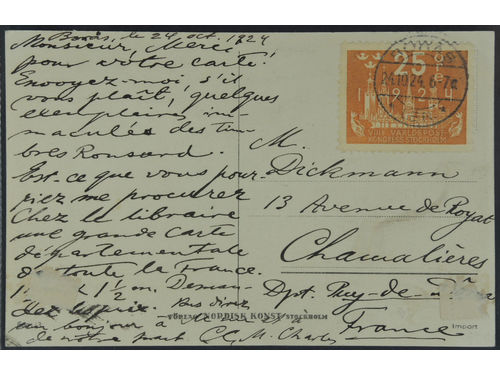 Borås, le 24 oct. 1924
Monsieur, Merci
pour votre carte!
Envoyez-moi, s'il
vous plaît, quelques
exemplaires im-
maculés des tim-
bres Ronsard.
Est-ce que vous pour-
riez me procurer
chez la libraire
une grande carte
départementale
de toute la France.
1 1/2 m. Deman-
dez le prix.
un bonjour à
de notre part C.C. M. Charles
BORÅS
24.10.24. 6-7a
25
ÖRE
1924
VIII: VÄRLDSPOST
KONGRESS STOCKHOLM
M.
Dickmann
13 Avenue de Royat
Chamalières
Dpt. Puy-de-Dôme
France
FÖRLAG NORDISK KONST STOCKHOLM
Import